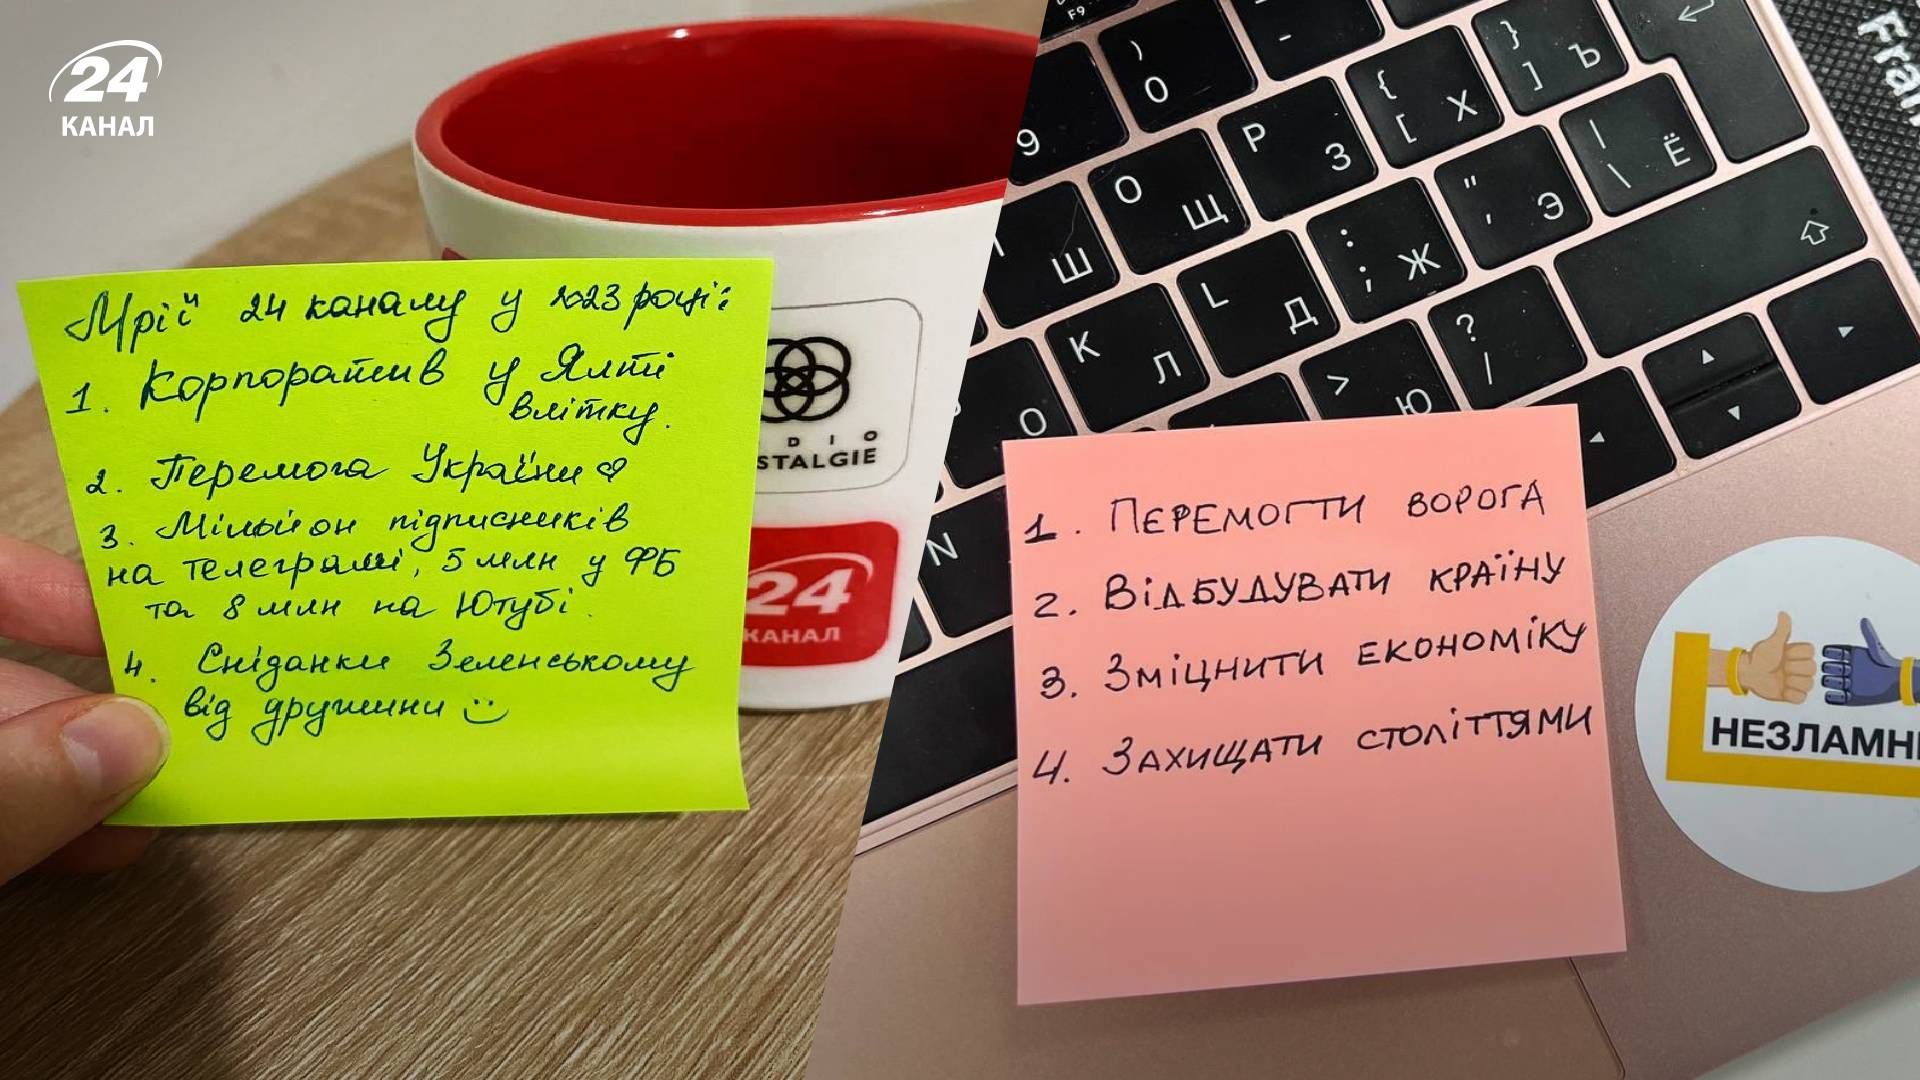 24
КАНАЛ
Мрії 24 каналу у 2023 році:
1. Корпоратив у Ялті
влітку.
2. Перемога України
3. Мільйон підписників
на телеграмі, 5 млн у ФБ
та 8 млн на Ютубі.
4. Сніданки Зеленському
від дружини
DIO
STALGIE
24
КАНАЛ
F9
)
0
-
}
]
Ъ
9
{
[
Х
|
\
Ё
P
З
O
Щ
"
'
Э
Ш
:
;
Ж
L
Д
?
/
K
Л
>
Ю
О
N
Fran
1. ПЕРЕМОГТИ ВОРОГА
2. ВІДБУДУВАТИ КРАЇНУ
3. ЗМІЦНИТИ ЕКОНОМІКУ
4. ЗАХИЩАТИ СТОЛІТТЯМИ
НЕЗЛАМН